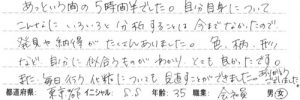 あっという間の5時間半でした。自分自身について
こんなにいろいろと分析することは今までなかったので
発見や納得がたくさんありました。色、柄、形
など自分に似合うものがわかり、とても良かったです。
また、毎日行う化粧についても見直すことができました。ありがとうございました。
都道府県: 東京都 イニシャル: S.S 年齢: 35 職業: 会社員 男・女